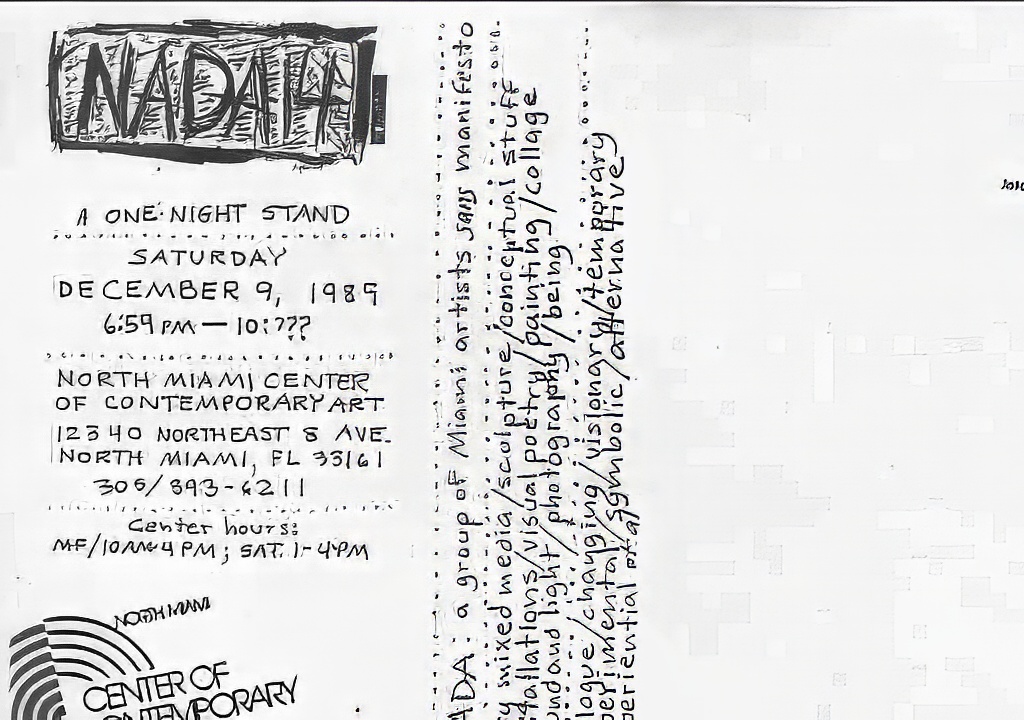 NADA 14
A ONE·NIGHT STAND
SATURDAY
DECEMBER 9, 1989
6:59 PM — 10:???
NORTH MIAMI CENTER
OF CONTEMPORARY ART
12340 NORTHEAST 8 AVE.
NORTH MIAMI, FL 33161
305/893-6211
Center hours:
MF/10AM-4PM; SAT. 1-4PM
NORTH MIAMI
CENTER OF
CONTEMPORARY
ADA: a group of Miami artists sans manifesto
mixed media/sculpture/conceptual stuff
allations/visual poetry/painting/collage
und and light/photography/being
logue/changing/visionary/temporary
perimental/symbolic/alternative
periential